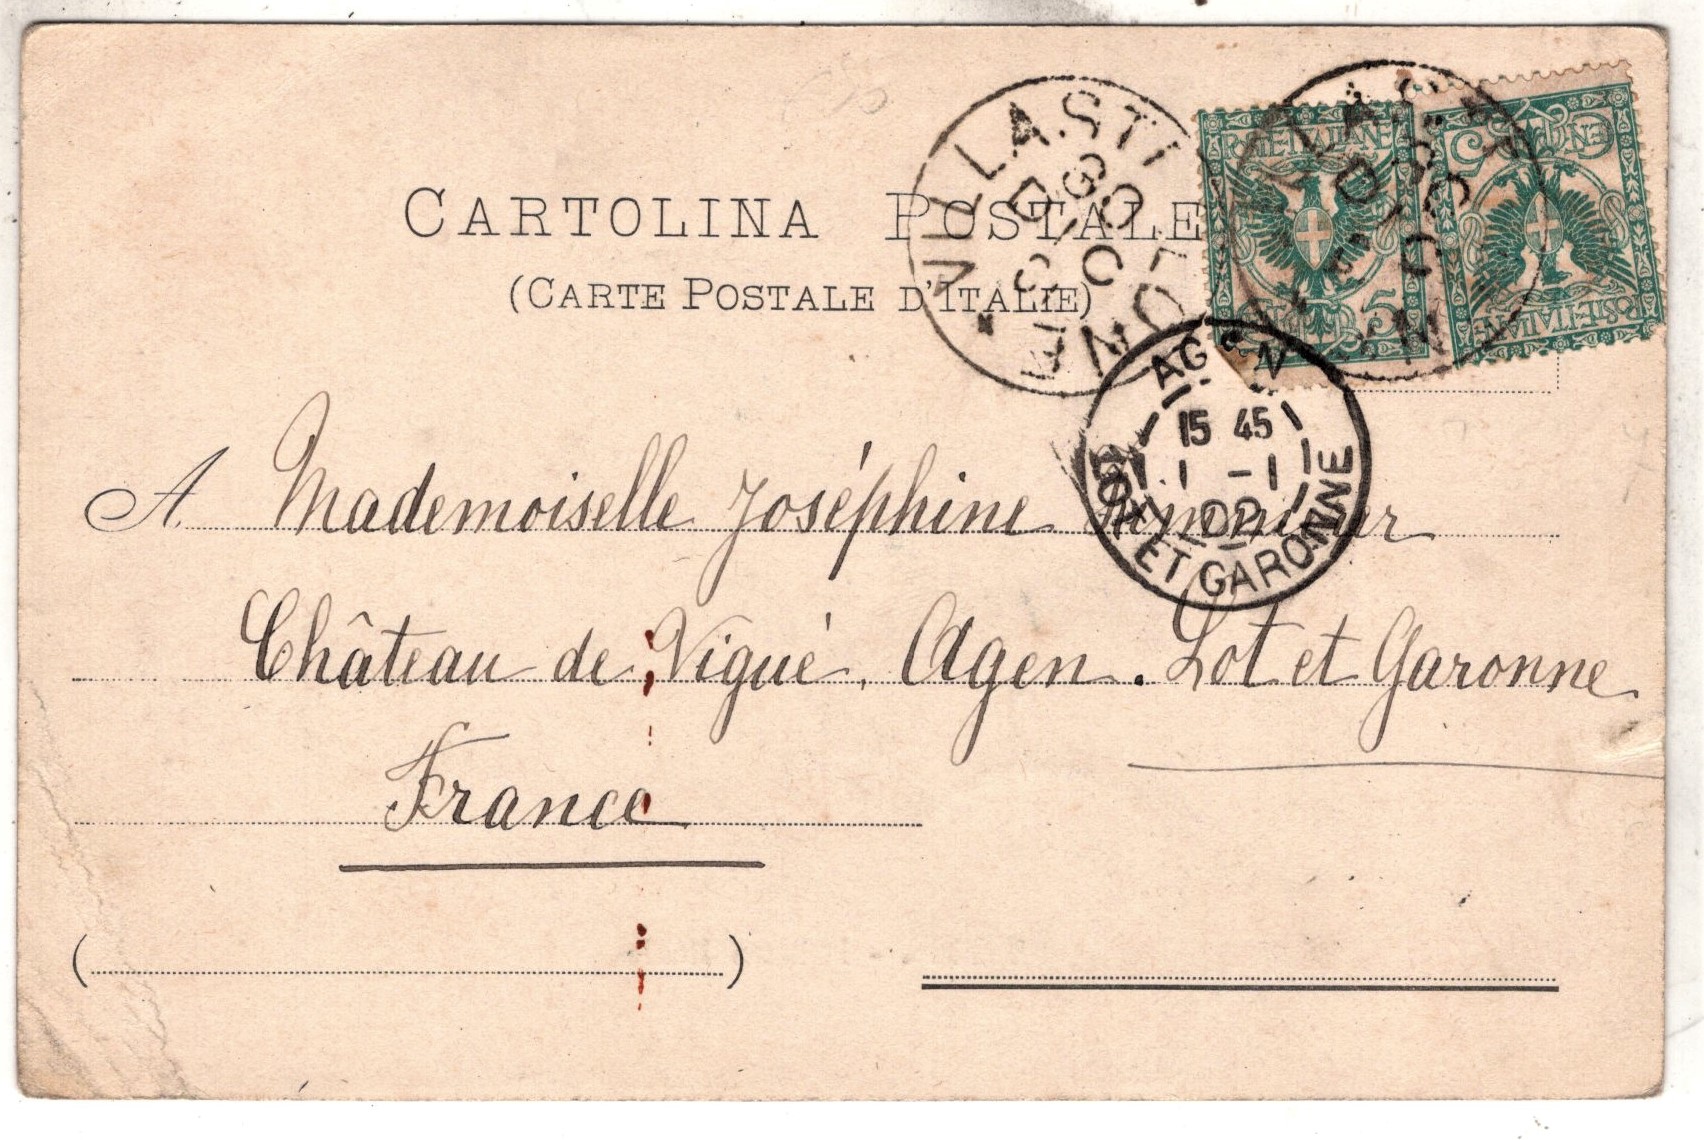 CARTOLINA POSTALE
(CARTE POSTALE D'ITALIE)
VILLASTELLONE
POSTE ITALIANE
5
POSTE ITALIANE
AGEN
15 45
1 - 1
02
LOT ET GARONNE
A Mademoiselle Joséphine
Château de Vigué, Agen. Lot et Garonne
France